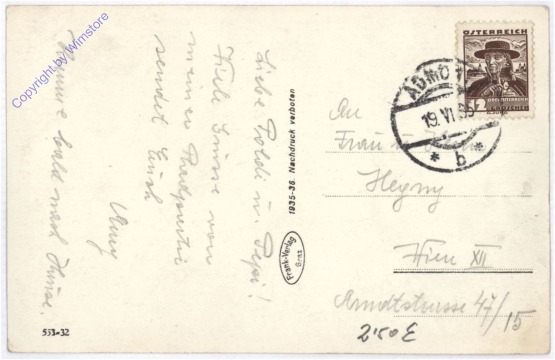 Copyright by Wimstore
Liebe Poldi u. Pepi!
Viele Grüsse von
meiner Radpartie
sendet Euch
Komme bald nach Hause.
553-32
1935-36. Nachdruck verboten
Frank-Verlag
Graz
ÖSTERREICH
12
GROSCHEN
ADMONT
19. VI. 36
* b *
An
Frau u. Herrn
Wien XII
Arndtstrasse 47/15
2·50 €